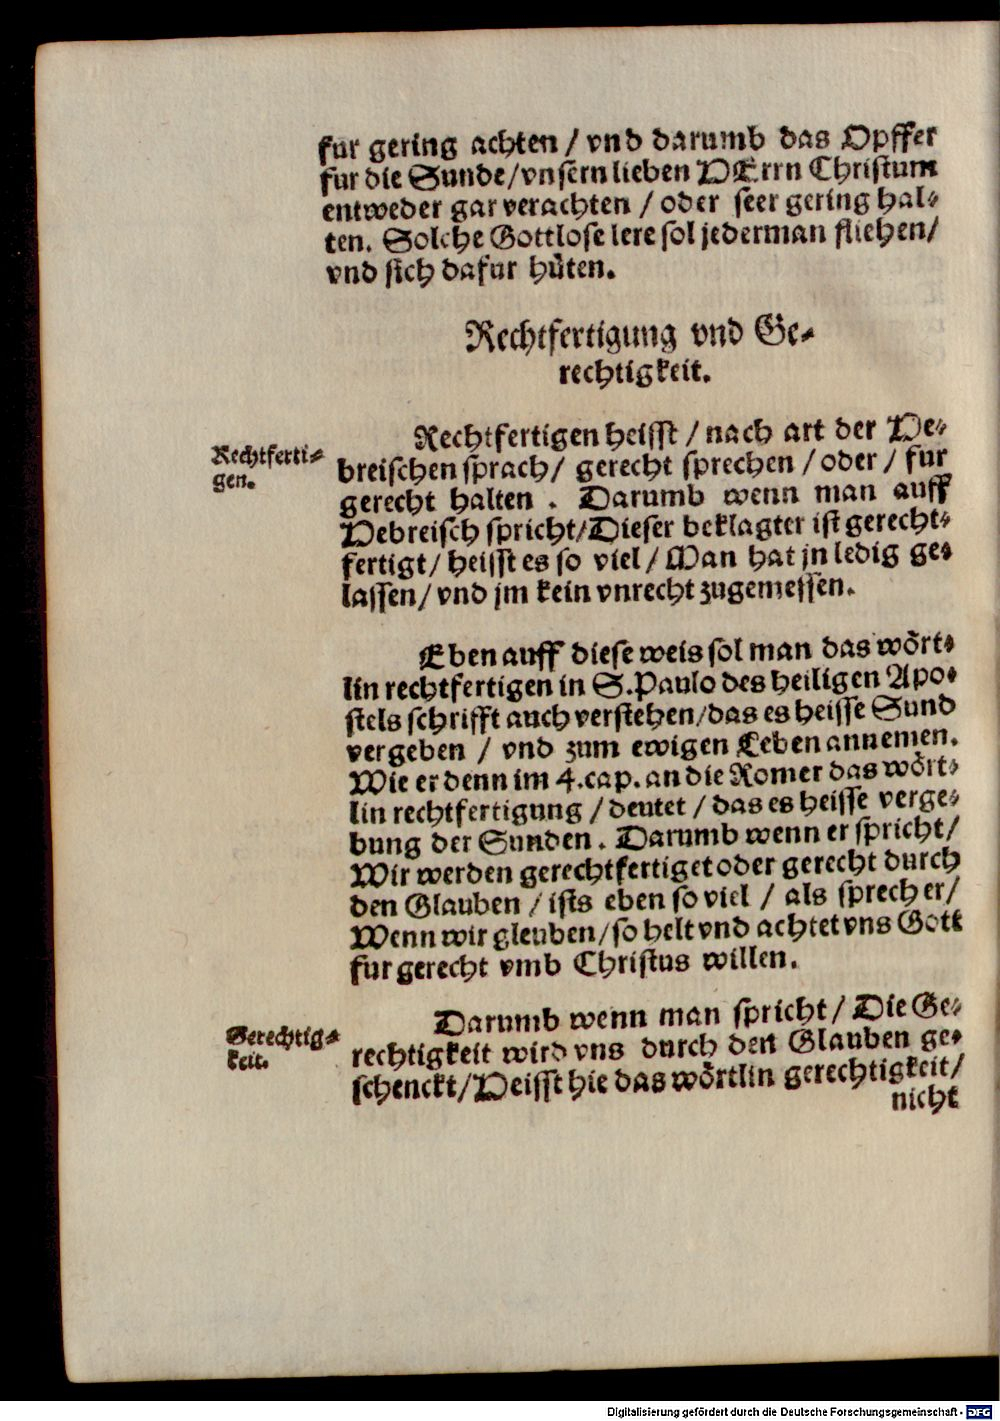 fur gering achten / vnd darumb das Opffer
fur die Sunde/vnsern lieben HErrn Christum
entweder gar verachten / oder seer gering hal-
ten. Solche Gottlose lere sol jederman fliehen/
vnd sich dafur hüten.
Rechtfertigung vnd Ge-
rechtigkeit.
Rechtferti-
gen.
Rechtfertigen heisst / nach art der He-
breischen sprach/ gerecht sprechen / oder / fur
gerecht halten . Darumb wenn man auff
Hebreisch spricht/Dieser beklagter ist gerecht-
fertigt/ heisst es so viel / Man hat jn ledig ge-
lassen/ vnd jm kein vnrecht zugemessen.
Eben auff diese weis sol man das wört-
lin rechtfertigen in S.Paulo des heiligen Apo-
stels schrifft auch verstehen/das es heisse Sund
vergeben / vnd zum ewigen Leben annemen.
Wie er denn im 4.cap. an die Romer das wört-
lin rechtfertigung / deutet / das es heisse verge-
bung der Sunden. Darumb wenn er spricht/
Wir werden gerechtfertiget oder gerecht durch
den Glauben / ists eben so viel / als sprech er/
Wenn wir gleuben/so helt vnd achtet vns Gott
fur gerecht vmb Christus willen.
Gerechtig-
keit.
Darumb wenn man spricht/ Die Ge-
rechtigkeit wird vns durch den Glauben ge-
schenckt/Heisst hie das wörtlin gerechtigkeit/
nicht
Digitalisierung gefördert durch die Deutsche Forschungsgemeinschaft - DFG